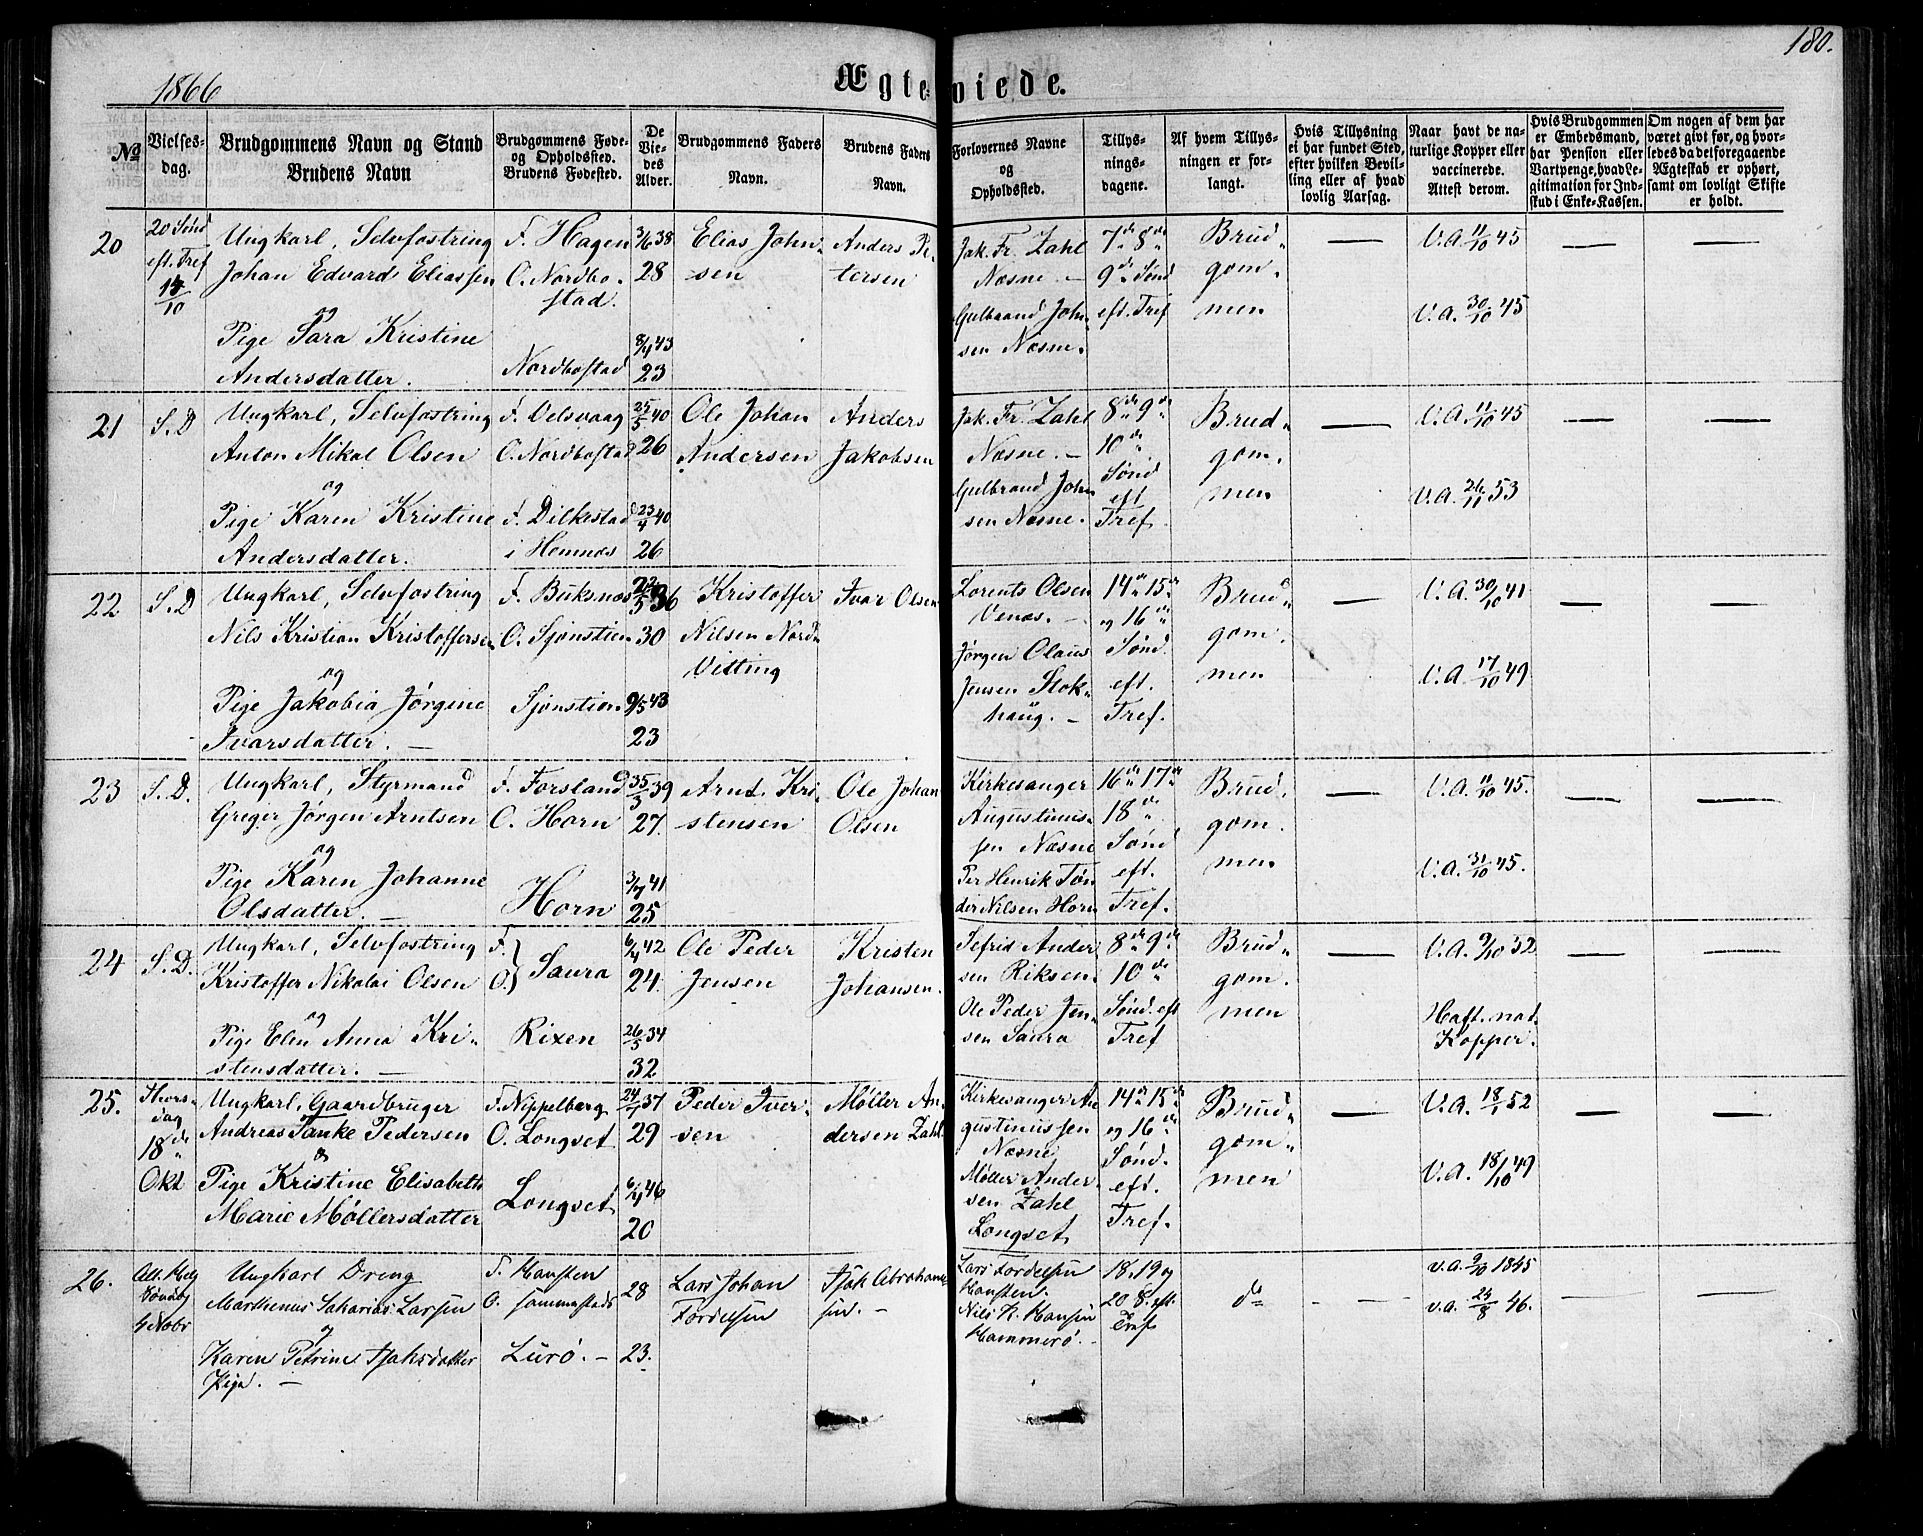 180.
1866
Ægteviede.
No
Vielses-
dag.
Brudgommens Navn og Stand
Brudens Navn
Brudgommens Føde-
og Opholdssted.
Brudens Fødested.
De
Vie-
des
Alder.
Brudgommens Faders
Navn.
Brudens Faders
Navn.
Forlovernes Navne
og
Opholdssted.
Tillys-
nings-
dagene.
Af hvem Tillys-
ningen er for-
langt.
Hvis Tillysning
ei har fundet Sted,
efter hvilken Bevil-
ling eller af hvad
lovlig Aarsag.
Naar havt de na-
turlige Kopper eller
vaccinerede.
Attest derom.
Hvis Brudgommen
er Embedsmand,
har Pension eller
Vartpenge, hvad Le-
gitimation for Ind-
skud i Enke-Kassen.
Om nogen af dem har
været gift før, og hvor-
ledes da det foregaaende
Ægteskab er ophørt,
samt om lovligt Skifte
er holdt.
20
20 Sönd
eft. Tref
14/10
Ungkarl, Selvfostring
Johan Edvard Eliassen
og
Pige Sara Kristine
Andersdatter.
F. Hagen
O. Nordbo-
stad.
Nordbostad
3/6 38
28
8/4 43
23
Elias John-
sen
Anders Pe-
tersen
Jak. Fr. Zahl
Næsne. —
Gulbrand John-
sen Næsne.
7de 8de
9de Sönd
eft. Tref
Brud-
gom-
men
—
V.A. 11/10 45
V.A. 30/10 45
—
—
21
S.D
Ungkarl, Selvfostring
Anton Mikal Olsen
og
Pige Karen Kristine
Andersdatter.
F. Velsvaag
O. Nordbostad
F. Dilkestad
i Hemnæs
25/5 40
26
23/4 40
26
Ole Johan
Andersen
Anders
Jakobsen
Jak. Fr. Zahl
Næsne. —
Gulbrand John
sen Næsne.
8de 9de
10de
Sönd
eft
Tref.
Brud-
gom-
men
—
V.A. 11/10 45
V.A. 26/11 53
—
—
22
S.D
Ungkarl, Selvfostring
Nils Kristian Kristoffersen
og
Pige Jakobia Jørgine
Ivarsdatter. —
F. Buksnæs
O. Sjonstien
Sjonstien
22/5 36
30
9/5 43
23
Kristoffer
Nilsen Nord-
Vitting
Ivar Olsen
Lorents Olsen
Venæs. —
Jørgen Olaus
Jensen Stok-
haug. —
14de 15de
og 16de
Sönd.
eft.
Tref.
Brud-
gom-
men
—
V.A. 30/10 41
V.A. 17/10 49
—
—
23
S.D.
Ungkarl, Styrmand
Greger Jørgen Arntsen
og
Pige Karen Johanne
Olsdatter. —
F. Forsland
O. Horn
Horn
39
27.
3/7 41
25
Arnt Kri-
stensen
Ole Johan
Olsen
Kirkesanger
Augustinus-
sen Næsne
Per Henrik Tön
der Nilsen Horn
16de 17de
18de
Sönd
eft.
Tref.
Brud-
gom-
men
—
V.A. 11/10 45.
V.A. 31/10 45.
—
—
24
S.D.
Ungkarl, Selvfostring
Kristoffer Nikolai Olsen
og
Pige Elen Anna Kri-
stensdatter. —
F.
O. } Saura
Rixen
6/4 42
24.
26/5 34
32
Ole Peder
Jensen
Kristen
Johansen.
Sefrid Ander
sen Riksen.
Ole Peder Jen-
sen Saura
8de 9de
10de
Sönd. eft
Tref
Brud-
gom-
men
—
V.A. 9/10 52
Haft. nat.
Kopper.
—
—
25.
Thors-
dag
18de
Okt
Ungkarl, Gaardbruger
Andreas Tanke Pedersen
&
Pige Kristine Elisabeth
Marie Møllersdatter
F. Nippelberg
O. Longset
Longset
24/1 37
29
6/4 46
20
Peder Iver-
sen
Møller An-
dersen Zahl
Kirkesanger Au
gustinussen
Næsne
Møller Ander-
sen Zahl
Longset
14de 15de
og 16de
Sönd.
eft.
Tref.
Brud-
gom-
men
—
V.A. 18/1 52
V.A. 18/10 49
—
—
26.
All. Helg
Söndag
4 Novbr
Ungkarl Dreng
Marthenus Sakarias Larsen
og
Karen Petrine Isaksdatter
Pige. —
F. Hansten
O.
Lurö. —
28
23.
Lars Johan
Fordelsen
Isak Abraham-
sen. —
Lars Fordelsen
Hansten.
Nils K. Hansen
Hammerö. —
18. 19 og
20 S. eft.
Tref.
do
- —
v.a. 9/10 1845
v.a. 24/8 46.
—
—